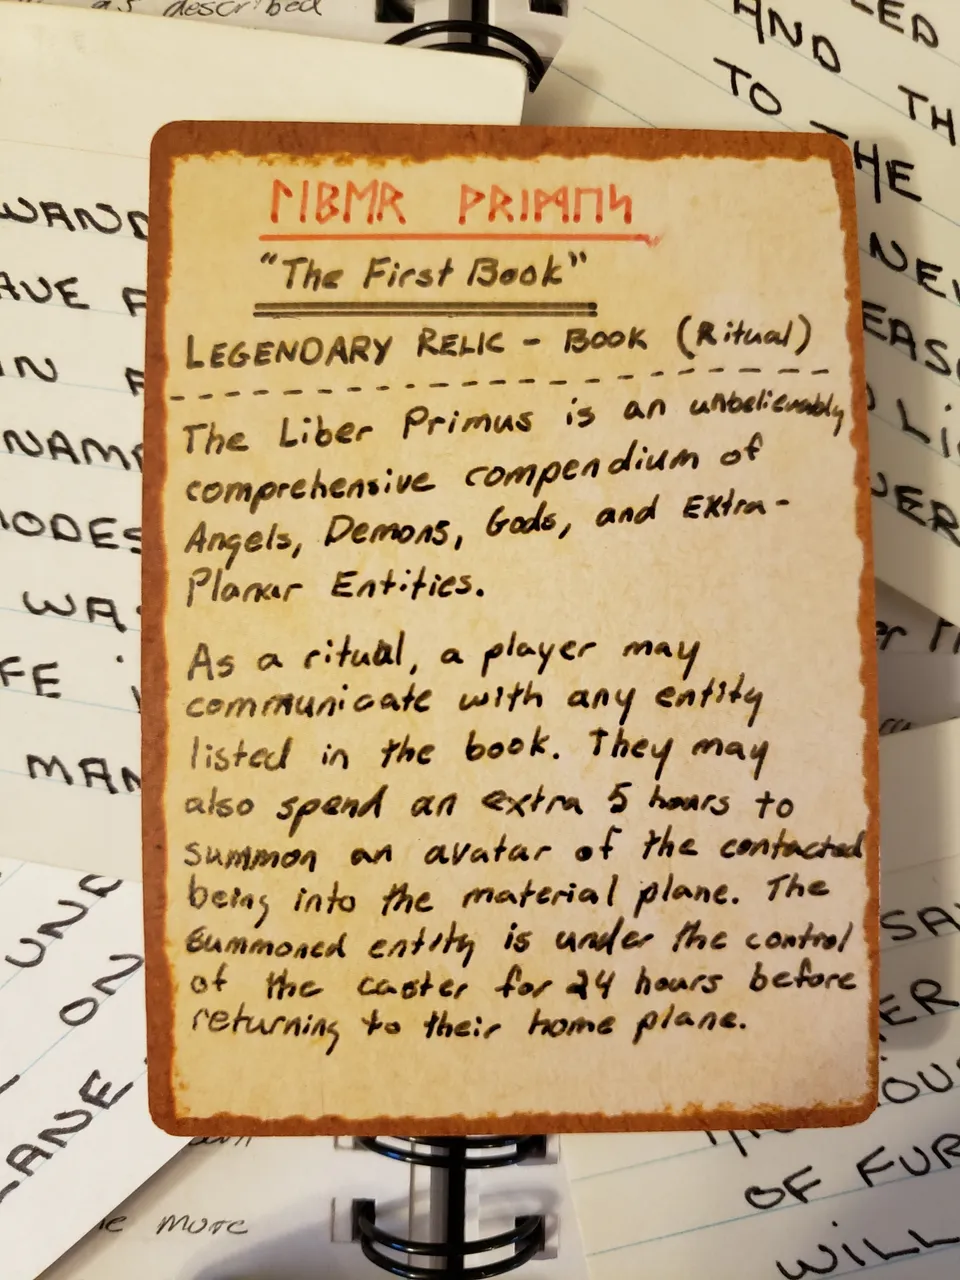 as described
LIBER PRIMUS
"The First Book"
LEGENDARY RELIC - BOOK (Ritual)
The Liber Primus is an unbelievably
comprehensive compendium of
Angels, Demons, Gods, and Extra-
Planar Entities.
As a ritual, a player may
communicate with any entity
listed in the book. They may
also spend an extra 5 hours to
summon an avatar of the contacted
being into the material plane. The
summoned entity is under the control
of the caster for 24 hours before
returning to their home plane.
AND
TO THE
IN
MAN
ON
LANE
more
OF FUR
WILL